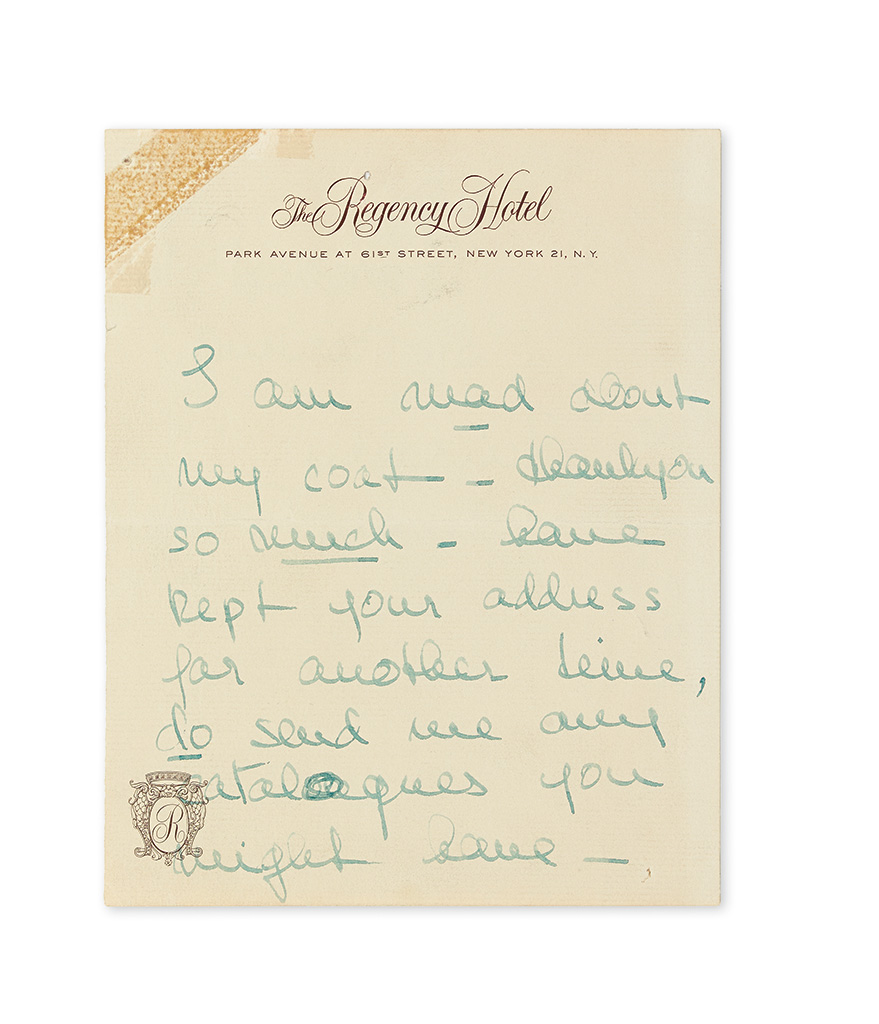 The Regency Hotel
PARK AVENUE AT 61ST STREET, NEW YORK 21, N.Y.
I am mad about
my coat – thankyou
so much – have
kept your address
for another time,
do send me any
catalogues you
R
might have –